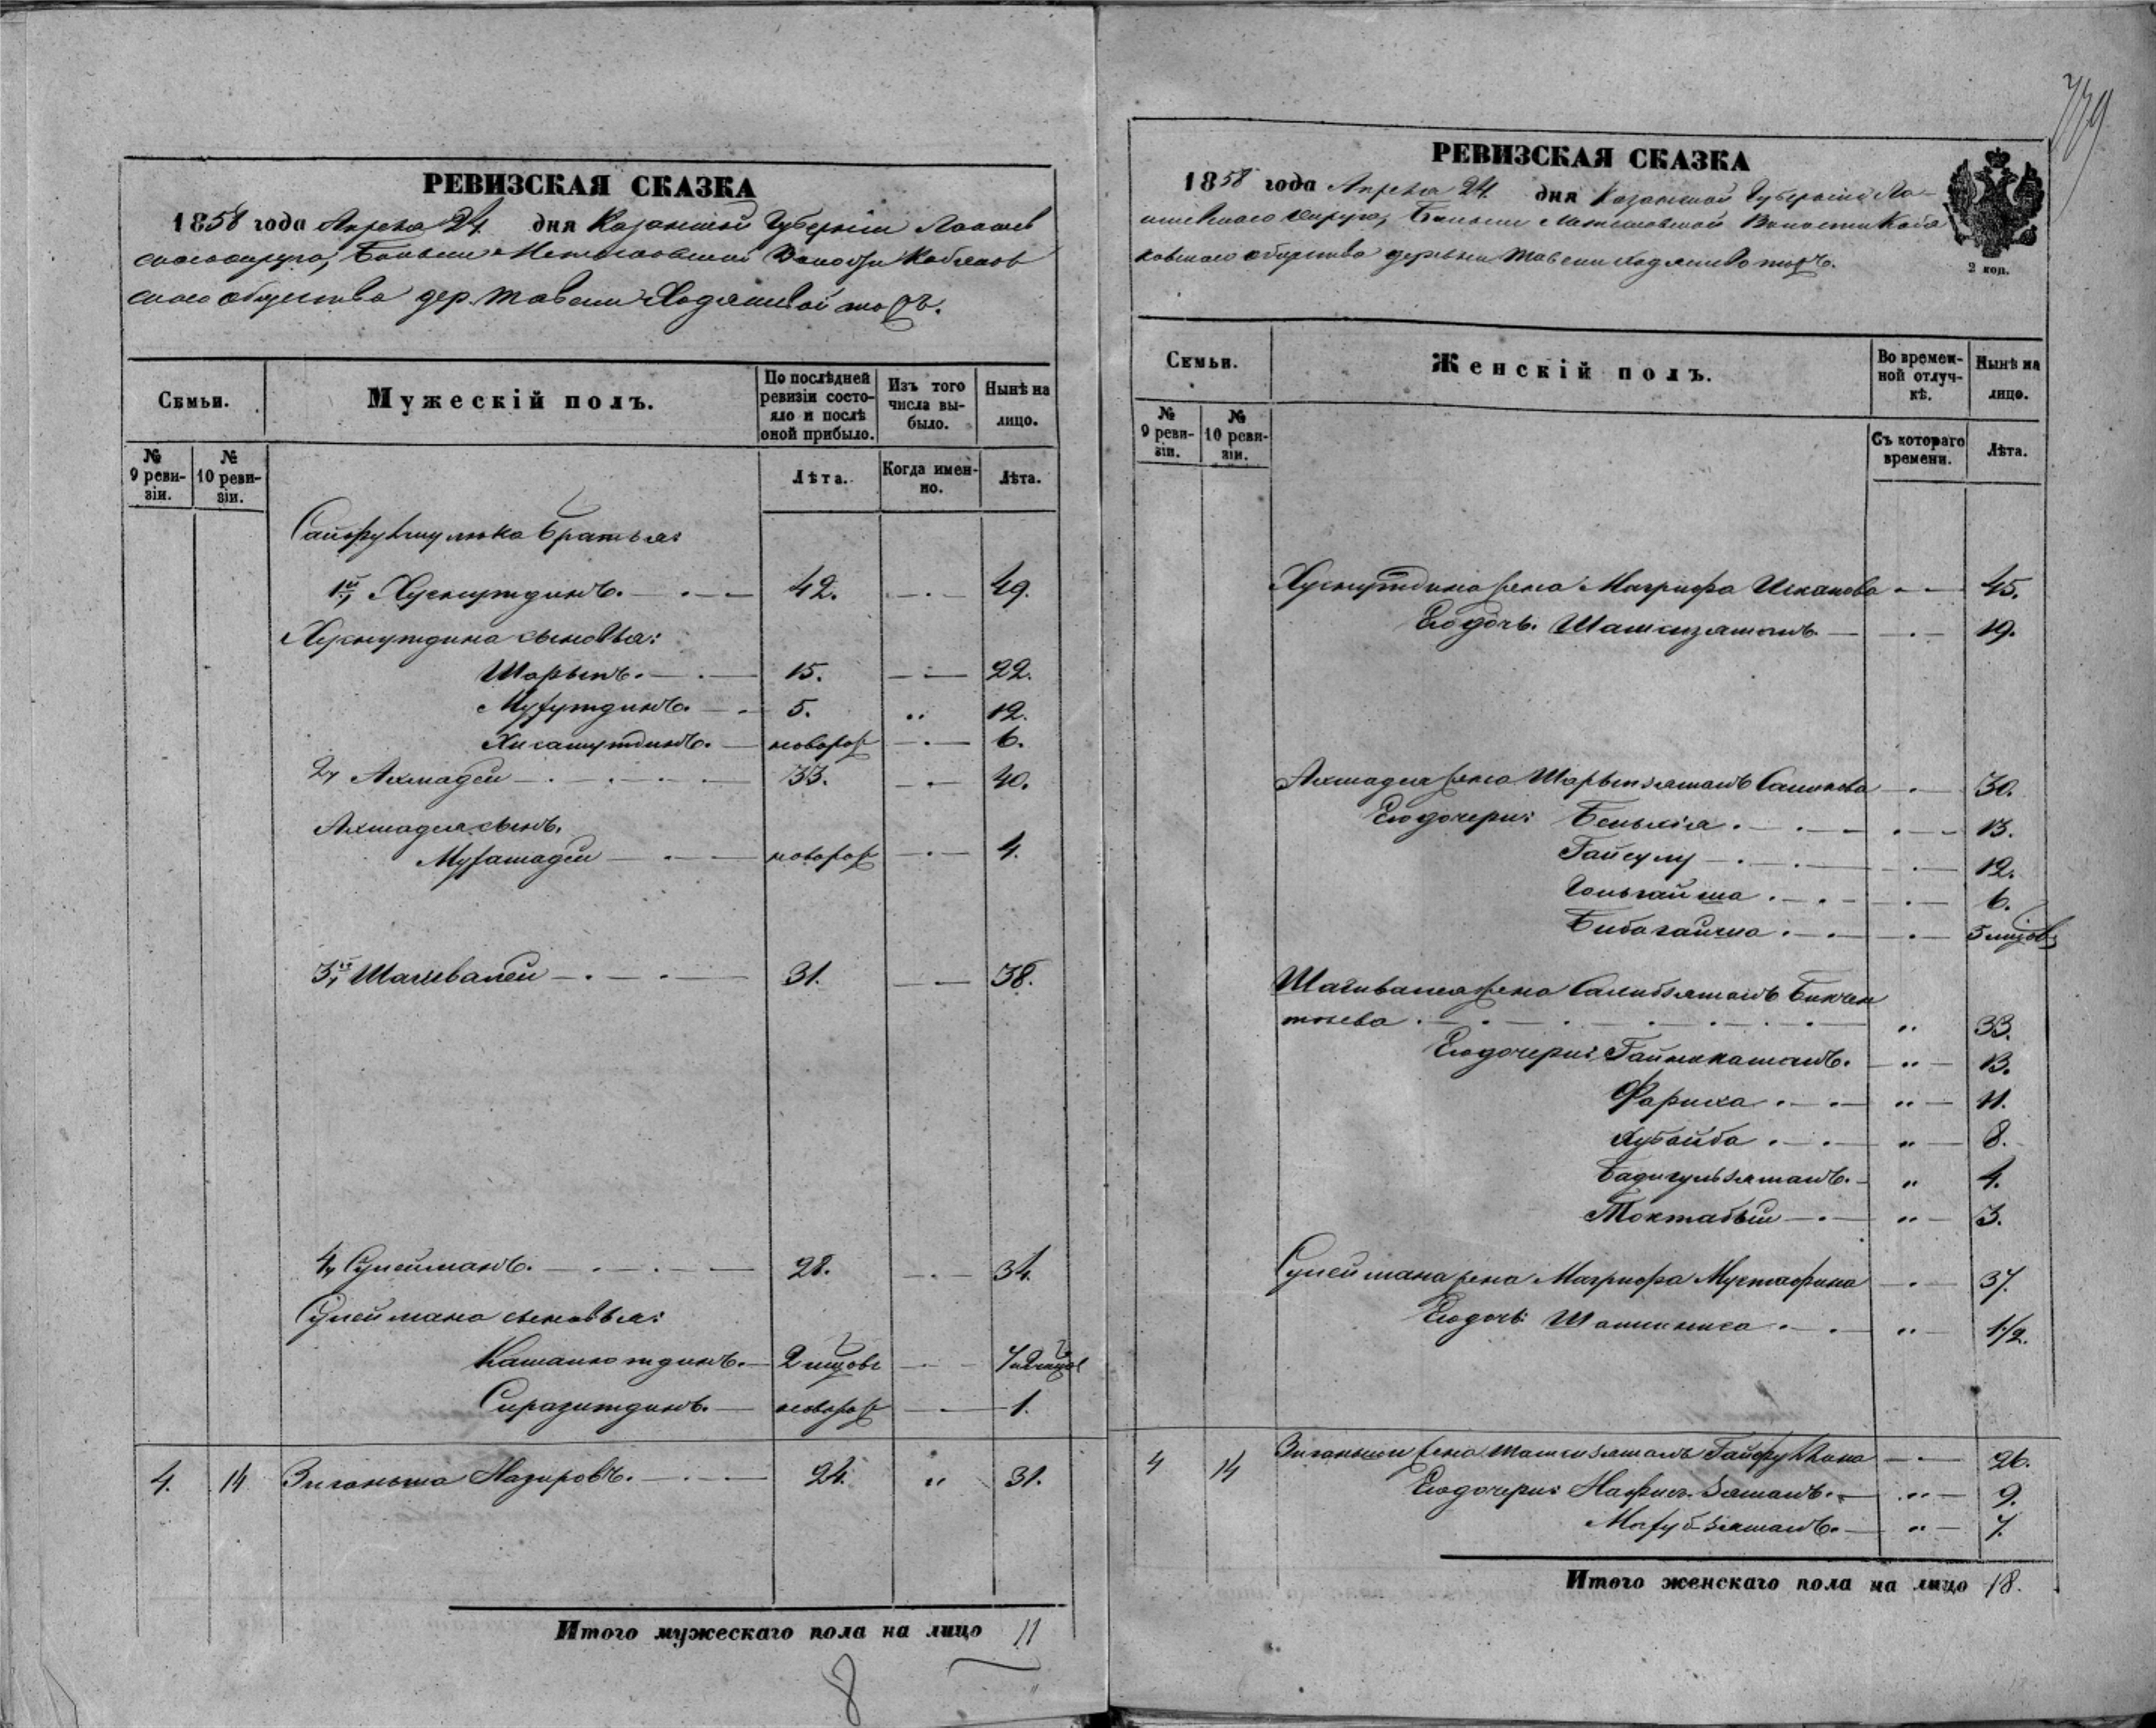 РЕВИЗСКАЯ СКАЗКА
1858 года Апреля 24 дня Казанской Губернiи Лаишев
скаго округа,
скаго общества дер. Тавели
Семьи.
Мужескій полъ.
По послѣдней ревизіи состояло и послѣ оной прибыло.
Изъ того числа выбыло.
Нынѣ на лицо.
№ 9 ревизіи.
№ 10 ревизіи.
Лѣта.
Когда именно.
Лѣта.
братья:
1й, Хуснутдинъ. 42. 49.
Хуснутдина сыновья:
Шарыпъ. 15. 22.
5. „ 12.
Хисамутдинъ. новорож 6.
2, Ахмадей 33. 40.
Ахмадея сынъ.
новорож 4.
3й, Шагивалей 31. 38.
4, Сулейманъ. 28. 34.
Сулеймана сыновья:
Камалютдинъ. 2
Сиразитдинъ. новорож 1.
4. 14 Зиганьша Назировъ. 24. „ 31.
Итого мужескаго пола на лицо 11
8
739
РЕВИЗСКАЯ СКАЗКА
1858 года Апреля 24. дня Казанской Губернiи Ла-
ишевскаго округа, Волости Каба
ковскаго общества деревни Тавели
2 коп.
Семьи.
Женскій полъ.
Во временной отлучкѣ.
Нынѣ на лицо.
№ 9 ревизіи.
№ 10 ревизіи.
Съ котораго времени.
Лѣта.
Хуснутдина жена Магрифа Исхакова 45.
Его дочь. Шамсизямалъ 19.
Ахмадея жена Шарыпзямалъ 30.
Его дочери: 13.
Гайсулу 12.
6.
5
Шагивалея жена Салибзямалъ Бикчен
таева „ 33.
Его дочери: Гайникамалъ. „ 13.
Фариха „ 11.
Хубайба „ 8.
Бадигульзямалъ. „ 4.
Токтабый „ 3.
Сулеймана жена Магрифа Мустафина 37.
Его дочь: „ 1/2.
4 14 Зиганьши жена Шамсизямалъ 26.
Его дочери: Нафисъ-зямалъ. „ 9.
„ 7.
Итого женскаго пола на лицо 18.